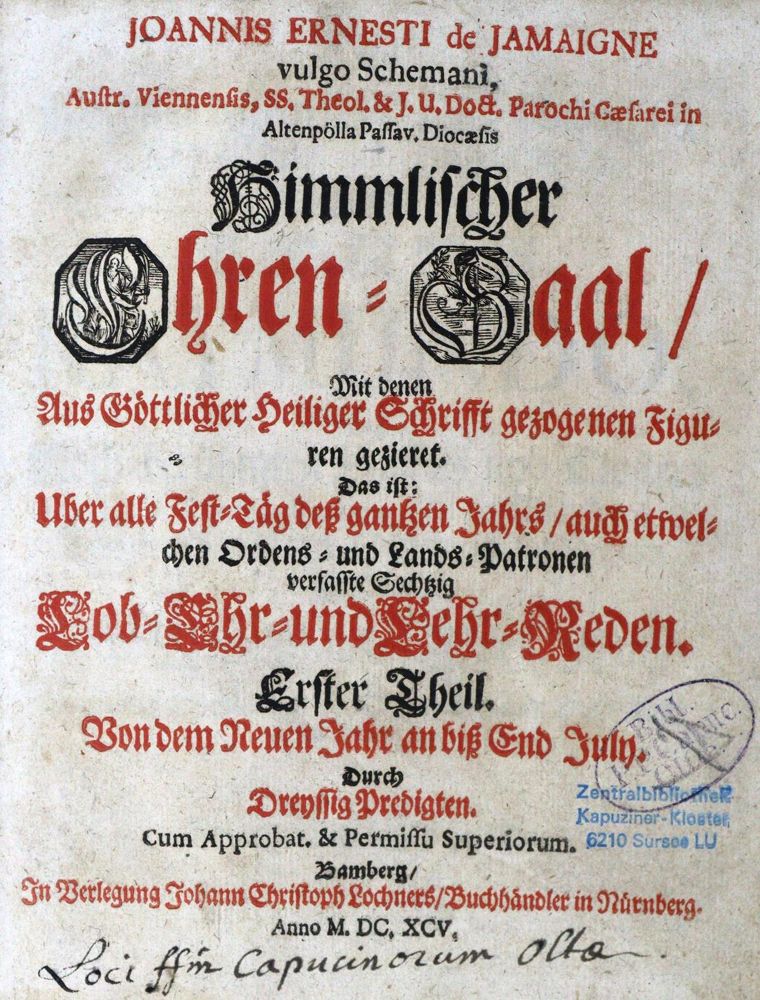 JOANNIS ERNESTI de JAMAIGNE
vulgo Schemani,
Austr. Viennensis, SS. Theol. & J. U. Doct. Parochi Cæsarei in
Altenpölla Passav. Diocæsis
Himmlischer
Ehren-Saal /
Mit denen
Aus Göttlicher Heiliger Schrifft gezogenen Figu-
ren gezieret.
Das ist:
Uber alle Fest-Täg deß gantzen Jahrs / auch etwel-
chen Ordens- und Lands-Patronen
verfasste Sechtzig
Lob-Ehr-und Lehr-Reden.
Erster Theil.
Von dem Neuen Jahr an biß End July.
Durch
Dreyssig Predigten.
Cum Approbat. & Permissu Superiorum.
Bamberg /
In Verlegung Johann Christoph Lochners / Buchhändler in Nürnberg.
Anno M. DC. XCV.
BIBL.
Zentralbibliothek
Kapuziner-Kloster
6210 Sursee LU
Loci ffm Capucinorum Oltæ